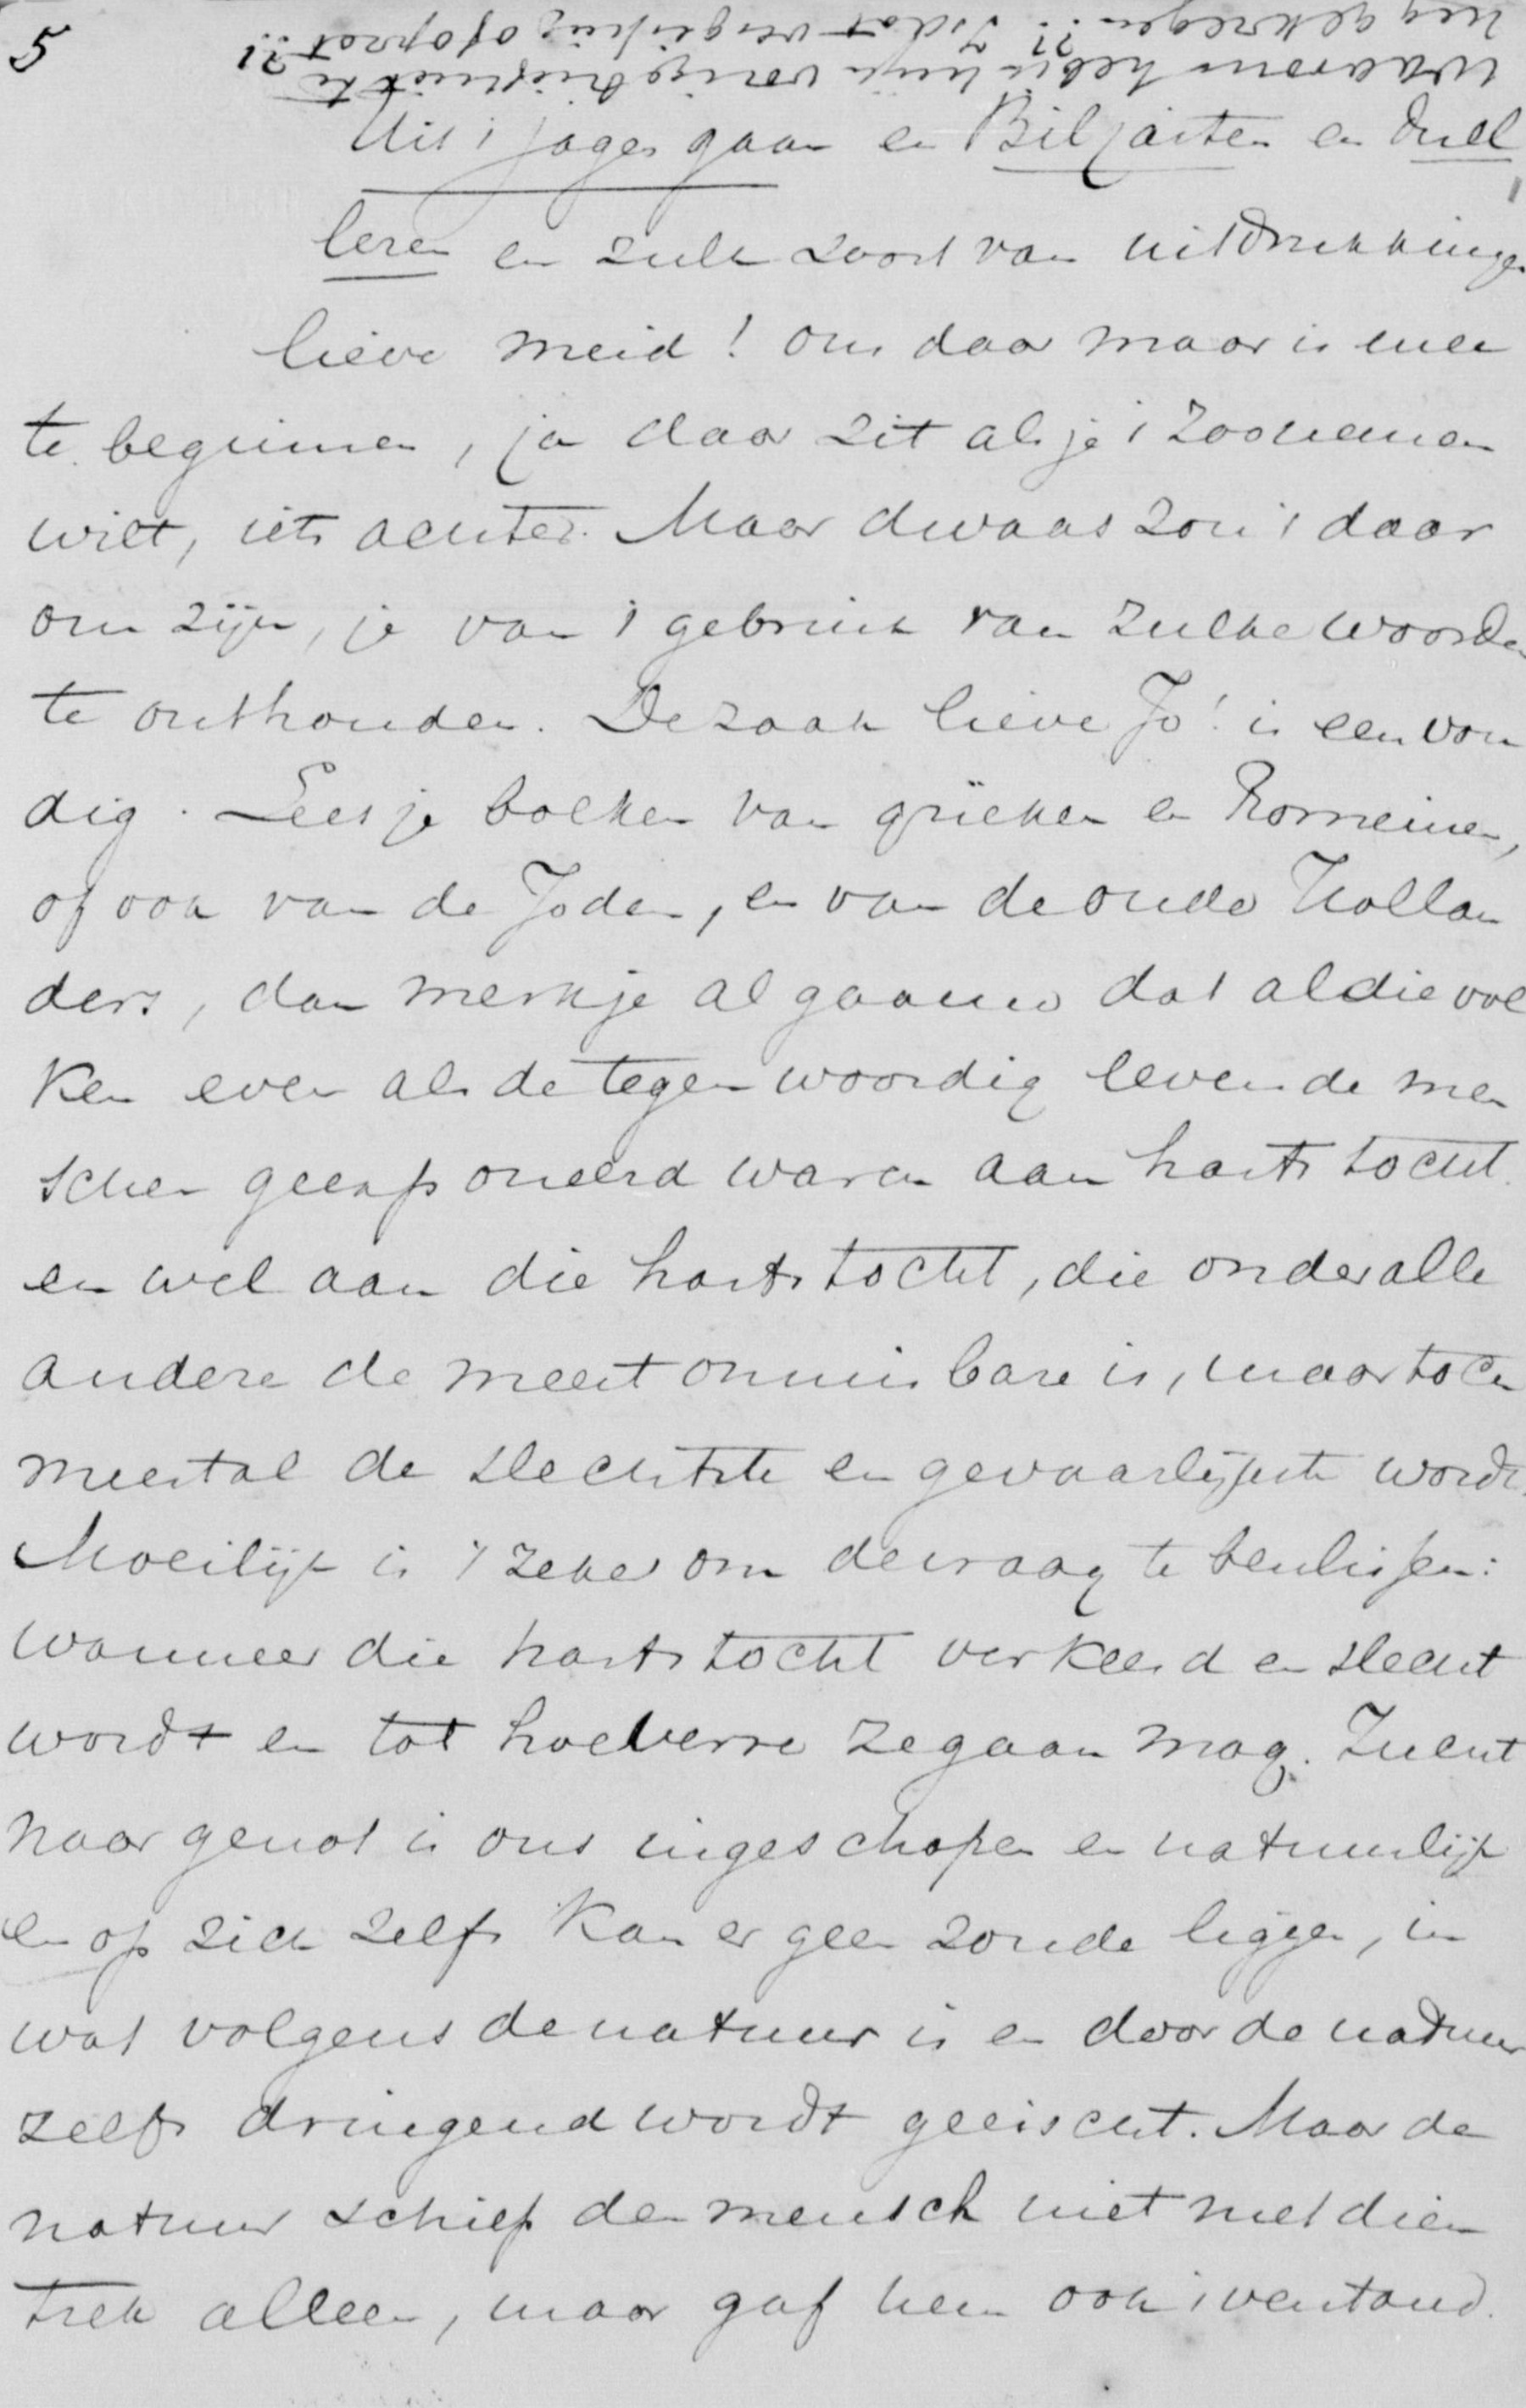 5
waarom heb je mijn vorige brief niet te
rug gekregen?! Is dat vergissing of opzet?!
Uit 't jagen gaan en Biljarten en duel
leren en zulk soort van uitdrukkingen
lieve meid! om daar maar is mee
te beginnen, ja daar zit als je 't zoo nemen
wilt, iets achter. Maar dwaas zou 't daar
om zijn, je van 't gebruik van zulke woorden
te onthouden. De zaak lieve Jo! is eenvou
dig. Lees je boeken van grieken en Romeinen,
of ook van de Joden, en van de oude Hollan
ders, dan merk je al gaauw dat al die vol
ken even als de tegenwoordig levende men
schen geexponeerd waren aan hartstocht.
en wel aan die hartstocht, die onder alle
andere de meest onmisbare is, maar toch
meestal de slechtste en gevaarlijkste wordt.
Moeilijk is 't zeker om de vraag te beslissen:
wanneer die hartstocht verkeerd en slecht
wordt en tot hoeverre ze gaan mag. Zucht
naar genot is ons ingeschapen en natuurlijk
en op zich zelf kan er geen zonde liggen, in
wat volgens de natuur is en door de natuur
zelf dringend wordt geeischt. Maar de
natuur schiep den mensch niet met dien
trek alleen, maar gaf hem ook 't verstand.